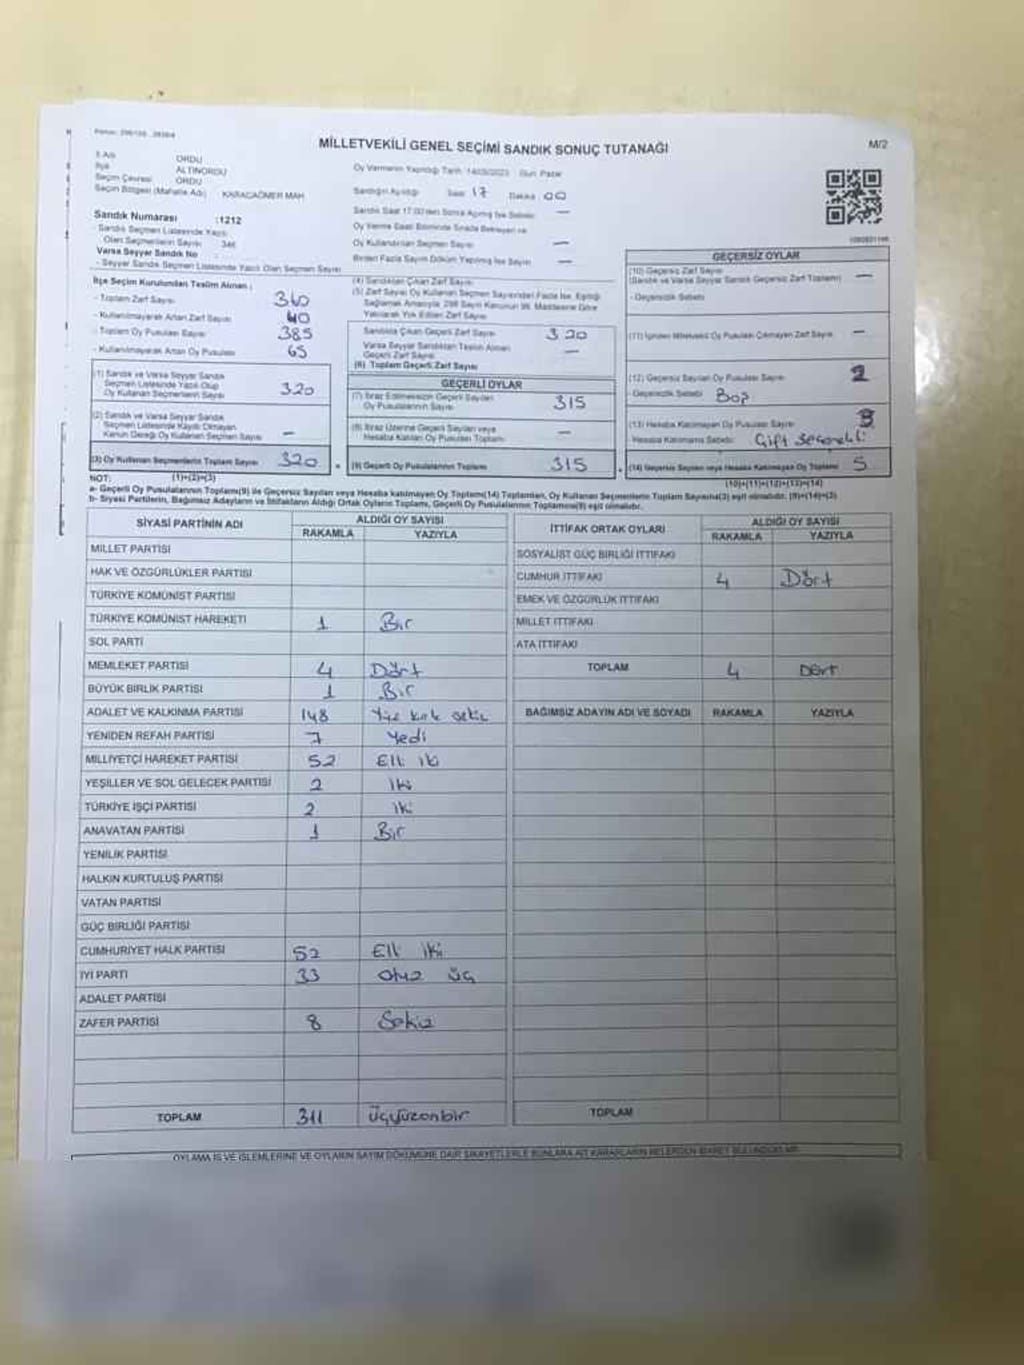 MİLLETVEKİLİ GENEL SEÇİMİ SANDIK SONUÇ TUTANAĞI
M/2
İl Adı ORDU
İlçe ALTINORDU
Seçim Çevresi ORDU
Seçim Bölgesi (Mahalle Adı) KARACAÖMER MAH
Sandık Numarası :1212
Sandık Seçmen Listesinde Yazılı
Olan Seçmenlerin Sayısı 346
Varsa Seyyar Sandık No
- Seyyar Sandık Seçmen Listesinde Yazılı Olan Seçmen Sayısı
Oy Vermenin Yapıldığı Tarih 14/05/2023 Gün Pazar
Sandığın Açıldığı Saat 17 Dakika 00
Sandık Saat 17.00'den Sonra Açılmış İse Sebebi —
Oy Verme Saati Bitiminde Sırada Bekleyen ve
Oy Kullandırılan Seçmen Sayısı —
Birden Fazla Sayım Döküm Yapılmış İse Sayısı —
İlçe Seçim Kurulundan Teslim Alınan :
- Toplam Zarf Sayısı 360
- Kullanılmayarak Artan Zarf Sayısı 40
- Toplam Oy Pusulası Sayısı 385
- Kullanılmayarak Artan Oy Pusulası 65
(1) Sandık ve Varsa Seyyar Sandık
Seçmen Listesinde Yazılı Olup
Oy Kullanan Seçmenlerin Sayısı 320
(2) Sandık ve Varsa Seyyar Sandık
Seçmen Listesinde Kayıtlı Olmayan
Kanun Gereği Oy Kullanan Seçmen Sayısı —
(3) Oy Kullanan Seçmenlerin Toplam Sayısı 320
(1)+(2)=(3)
(4) Sandıktan Çıkan Zarf Sayısı
(5) Zarf Sayısı Oy Kullanan Seçmen Sayısından Fazla İse, Eşitliği
Sağlamak Amacıyla, 298 Sayılı Kanunun 98. Maddesine Göre
Yakılarak Yok Edilen Zarf Sayısı
Sandıkta Çıkan Geçerli Zarf Sayısı 320
Varsa Seyyar Sandıktan Teslim Alınan
Geçerli Zarf Sayısı —
(6) Toplam Geçerli Zarf Sayısı
GEÇERLİ OYLAR
(7) İtiraz Edilmeksizin Geçerli Sayılan
Oy Pusulalarının Sayısı 315
(8) İtiraz Üzerine Geçerli Sayılan veya
Hesaba Katılan Oy Pusulası Toplamı —
(9) Geçerli Oy Pusulalarının Toplamı 315
GEÇERSİZ OYLAR
(10) Geçersiz Zarf Sayısı
(Sandık ve Varsa Seyyar Sandık Geçersiz Zarf Toplamı) —
- Geçersizlik Sebebi
(11) İçinden Milletvekili Oy Pusulası Çıkmayan Zarf Sayısı —
(12) Geçersiz Sayılan Oy Pusulası Sayısı 2
- Geçersizlik Sebebi Boş
(13) Hesaba Katılmayan Oy Pusulası Sayısı 3
- Hesaba Katılmama Sebebi Çift seçenekli
(14) Geçersiz Sayılan veya Hesaba Katılmayan Oy Toplamı 5
(10)+(11)+(12)+(13)=(14)
NOT:
a- Geçerli Oy Pusulalarının Toplamı(9) ile Geçersiz Sayılan veya Hesaba katılmayan Oy Toplamı(14) Toplamları, Oy Kullanan Seçmenlerin Toplam Sayısına(3) eşit olmalıdır. (9)+(14)=(3)
b- Siyasi Partilerin, Bağımsız Adayların ve İttifakların Aldığı Ortak Oyların Toplamı, Geçerli Oy Pusulalarının Toplamına(9) eşit olmalıdır.
SİYASİ PARTİNİN ADI ALDIĞI OY SAYISI
RAKAMLA YAZIYLA
MİLLET PARTİSİ
HAK VE ÖZGÜRLÜKLER PARTİSİ
TÜRKİYE KOMÜNİST PARTİSİ
TÜRKİYE KOMÜNİST HAREKETİ 1 Bir
SOL PARTİ
MEMLEKET PARTİSİ 4 Dört
BÜYÜK BİRLİK PARTİSİ 1 Bir
ADALET VE KALKINMA PARTİSİ 148 Yüz kırk sekiz
YENİDEN REFAH PARTİSİ 7 Yedi
MİLLİYETÇİ HAREKET PARTİSİ 52 Elli iki
YEŞİLLER VE SOL GELECEK PARTİSİ 2 iki
TÜRKİYE İŞÇİ PARTİSİ 2 iki
ANAVATAN PARTİSİ 1 Bir
YENİLİK PARTİSİ
HALKIN KURTULUŞ PARTİSİ
VATAN PARTİSİ
GÜÇ BİRLİĞİ PARTİSİ
CUMHURİYET HALK PARTİSİ 52 Elli iki
İYİ PARTİ 33 otuz üç
ADALET PARTİSİ
ZAFER PARTİSİ 8 Sekiz
TOPLAM 311 üçyüzonbir
İTTİFAK ORTAK OYLARI ALDIĞI OY SAYISI
RAKAMLA YAZIYLA
SOSYALİST GÜÇ BİRLİĞİ İTTİFAKI
CUMHUR İTTİFAKI 4 Dört
EMEK VE ÖZGÜRLÜK İTTİFAKI
MİLLET İTTİFAKI
ATA İTTİFAKI
TOPLAM 4 Dört
BAĞIMSIZ ADAYIN ADI VE SOYADI RAKAMLA YAZIYLA
TOPLAM